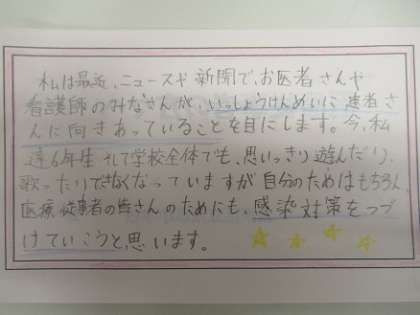 私は最近、ニュースや新聞で、お医者さんや
看護師のみなさんが、いっしょうけんめいに患者さ
んに向きあっていることを目にします。今、私
達6年生そして学校全体でも、思いっきり遊んだり、
歌ったりできなくなっていますが自分のためはもちろん
医療従事者の皆さんのためにも、感染対策をつづ
けていこうと思います。